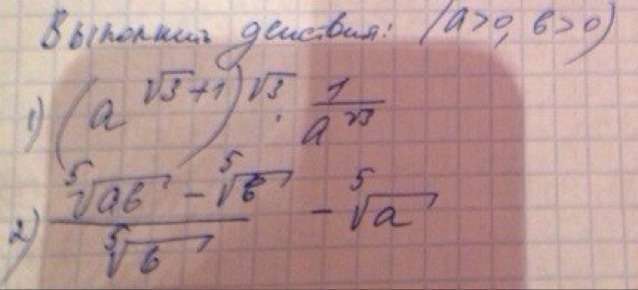 Выполнить действия: (a>0, b>0)
1) (a^{√3+1})^{√3} · 1/a^{√3}
2) (⁵√ab - ⁵√b)/⁵√b - ⁵√a